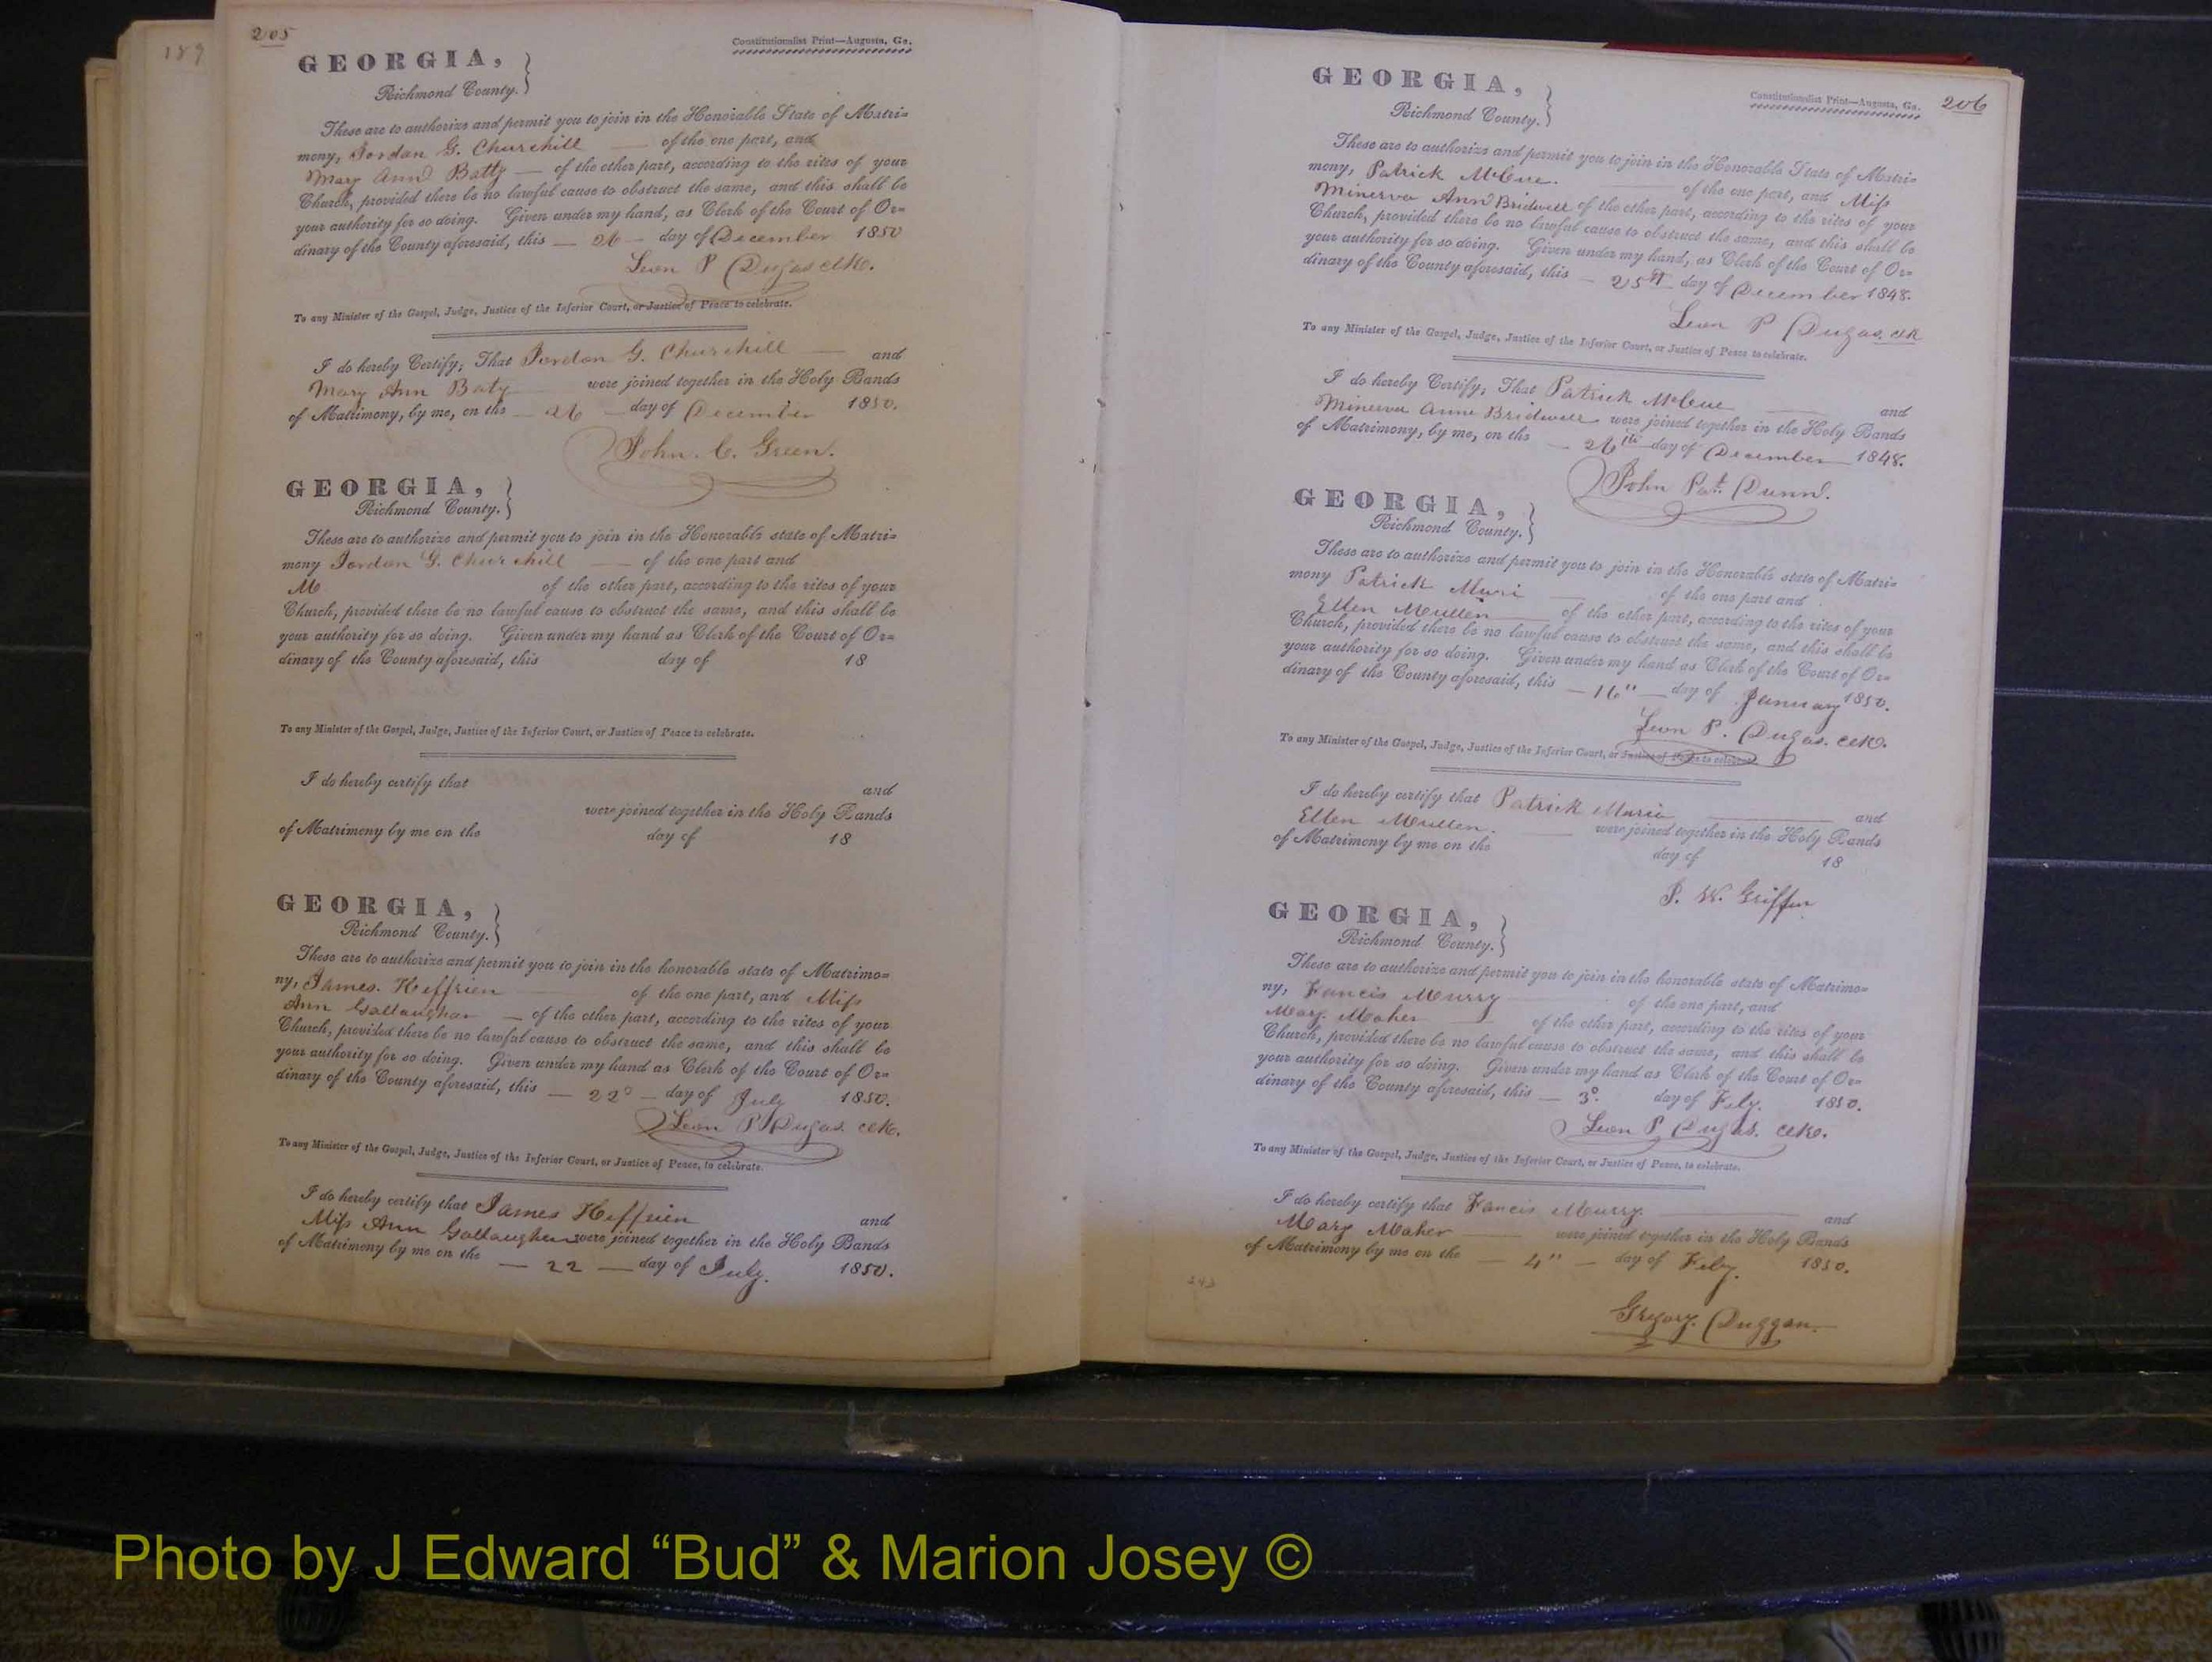 189
205
Constitutionalist Print—Augusta, Ga.
GEORGIA,
Richmond County.
These are to authorize and permit you to join in the Honorable State of Matri=
mony, Jordan G. Churchill — of the one part, and
Mary Ann Batty — of the other part, according to the rites of your
Church, provided there be no lawful cause to obstruct the same, and this shall be
your authority for so doing. Given under my hand, as Clerk of the Court of Or=
dinary of the County aforesaid, this — 26 — day of December 1850
Leon P Dugas clk.
To any Minister of the Gospel, Judge, Justice of the Inferior Court, or Justice of Peace to celebrate.
I do hereby Certify, That Jordan G. Churchill — and
Mary Ann Baty were joined together in the Holy Bands
of Matrimony, by me, on the — 26 — day of December 1850.
John. C. Green.
GEORGIA,
Richmond County.
These are to authorize and permit you to join in the Honorable state of Matri=
mony Jordan G. Churchill — of the one part and
M of the other part, according to the rites of your
Church, provided there be no lawful cause to obstruct the same, and this shall be
your authority for so doing. Given under my hand as Clerk of the Court of Or=
dinary of the County aforesaid, this day of 18
To any Minister of the Gospel, Judge, Justice of the Inferior Court, or Justice of Peace to celebrate.
I do hereby certify that and
were joined together in the Holy Bands
of Matrimony by me on the day of 18
GEORGIA,
Richmond County.
These are to authorize and permit you to join in the honorable state of Matrimo=
ny, James. Heffrien of the one part, and Miss
Ann Gallaugher — of the other part, according to the rites of your
Church, provided there be no lawful cause to obstruct the same, and this shall be
your authority for so doing. Given under my hand as Clerk of the Court of Or=
dinary of the County aforesaid, this — 22° — day of July 1850.
Leon P Dugas. clk.
To any Minister of the Gospel, Judge, Justice of the Inferior Court, or Justice of Peace, to celebrate.
I do hereby certify that James Heffrien and
Miss Ann Gallaugher were joined together in the Holy Bands
of Matrimony by me on the — 22 — day of July. 1850.
Constitutionalist Print—Augusta, Ga.
206
GEORGIA,
Richmond County.
These are to authorize and permit you to join in the Honorable State of Matri=
mony, Patrick McCue. of the one part, and Miss
Minerva Ann Bridwell of the other part, according to the rites of your
Church, provided there be no lawful cause to obstruct the same, and this shall be
your authority for so doing. Given under my hand, as Clerk of the Court of Or=
dinary of the County aforesaid, this — 25th day of December 1848.
Leon P Dugas. clk
To any Minister of the Gospel, Judge, Justice of the Inferior Court, or Justice of Peace to celebrate.
I do hereby Certify, That Patrick McCue — and
Minerva Anne Bridwell were joined together in the Holy Bands
of Matrimony, by me, on the — 26th day of December 1848.
John Pat. Dunn.
GEORGIA,
Richmond County.
These are to authorize and permit you to join in the Honorable state of Matri=
mony Patrick Muri — of the one part and
Ellen Mullen of the other part, according to the rites of your
Church, provided there be no lawful cause to obstruct the same, and this shall be
your authority for so doing. Given under my hand as Clerk of the Court of Or=
dinary of the County aforesaid, this — 16" — day of January 1850.
Leon P. Dugas. clk.
To any Minister of the Gospel, Judge, Justice of the Inferior Court, or Justice of Peace to celebrate.
I do hereby certify that Patrick Muria — and
Ellen Mullen. — were joined together in the Holy Bands
of Matrimony by me on the day of 18
P. W. Griffin
GEORGIA,
Richmond County.
These are to authorize and permit you to join in the honorable state of Matrimo=
ny, Francis Murry of the one part, and
Mary. Maher — of the other part, according to the rites of your
Church, provided there be no lawful cause to obstruct the same, and this shall be
your authority for so doing. Given under my hand as Clerk of the Court of Or=
dinary of the County aforesaid, this — 3°. day of Feby. 1850.
Leon P Dugas. clk.
To any Minister of the Gospel, Judge, Justice of the Inferior Court, or Justice of Peace, to celebrate.
I do hereby certify that Francis Murry — and
Mary Maher — were joined together in the Holy Bands
of Matrimony by me on the — 4" — day of Feby. 1850.
243
Gregory. Duggan.
Photo by J Edward “Bud” & Marion Josey ©